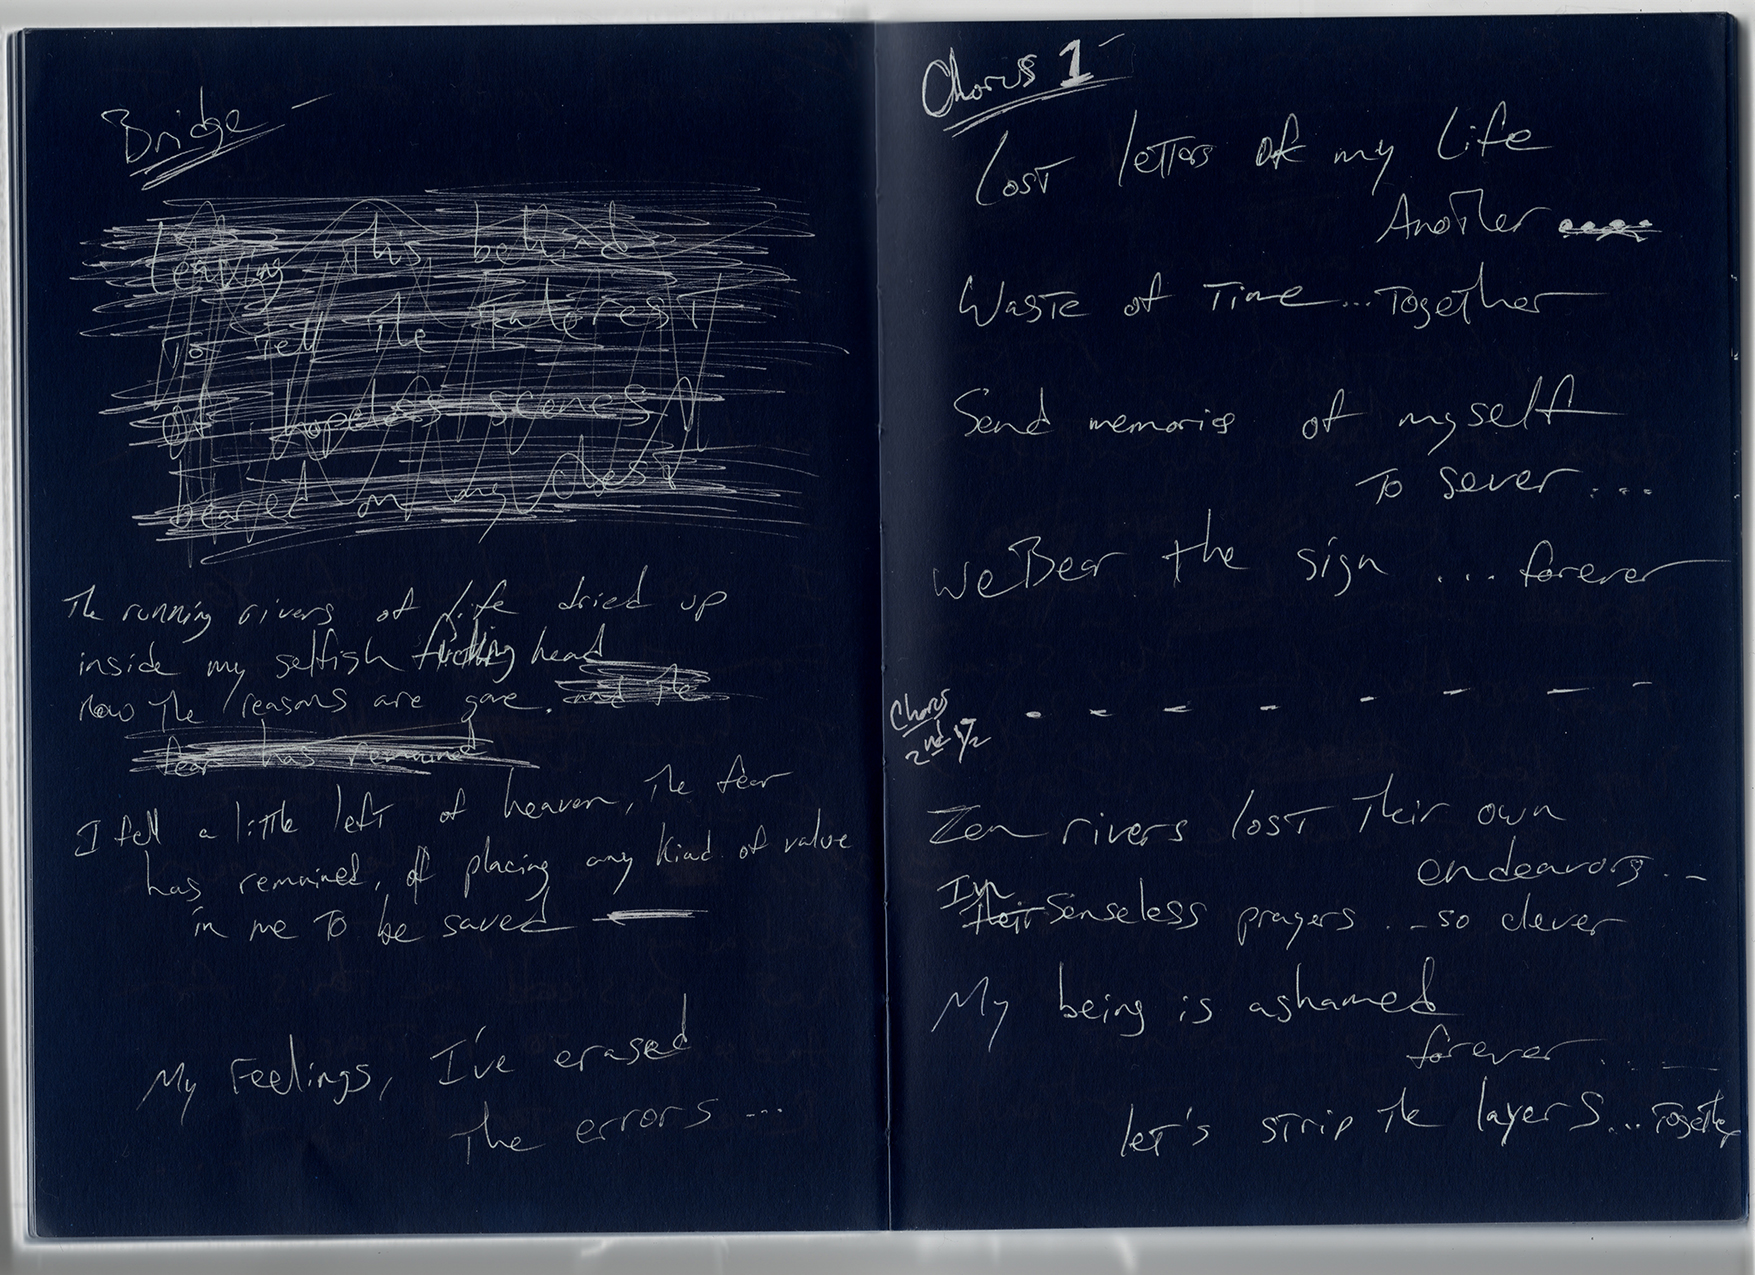 Bridge –
leaving this behind
to let the interest
of hopeless scenes
beared on my chest
The running rivers of life dried up
inside my selfish fucking head
now the reasons are gone. and the
fear has remained
I fell a little left of heaven, the fear
has remained, of placing any kind of value
in me to be saved —
My Feelings, I've erased
The errors ...
Chorus 1 –
Lost letters of my life
Another
Waste of Time ... Together
Send memories of myself
To sever ...
We Bear the sign ... forever
Chorus
2nd 1/2
Zen rivers lost their own
endeavors ..
In
their senseless prayers ... so clever
My being is ashamed
forever ...
let's strip the layers ... Together